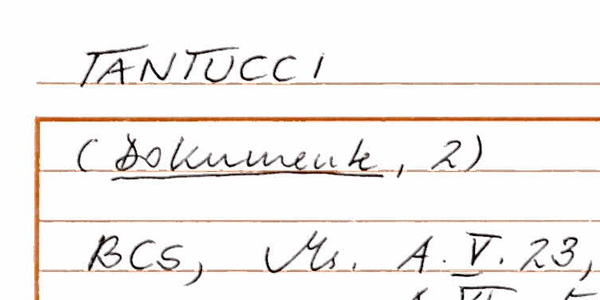 TANTUCCI
(Dokumente, 2)
BCS, Ms. A. V. 23,